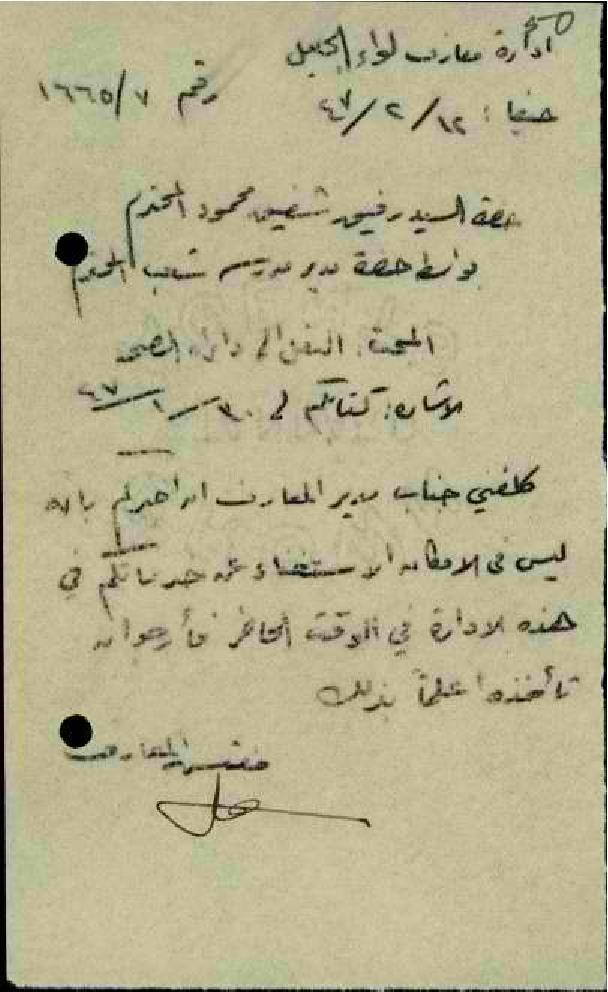 ادارة معارف لواء الجليل
رقم ١٦٦٥/٧
حيفا : ١٢/٢/٤٧
حضرة السيد رفيق شفيق محمود المحترم
بواسطة حضرة مدير مدرسة شعب المحترم
المبحث: النقل الى دائرة الصحة
الاشارة: كتابكم في ٣٠/١/٤٧
كلفني جناب مدير المعارف ان اخبركم بانه
ليس في الامكان الاستغناء عن خدماتكم في
هذه الادارة في الوقت الحاضر فأرجو ان
تأخذوا علماً بذلك
مفتش المعارف